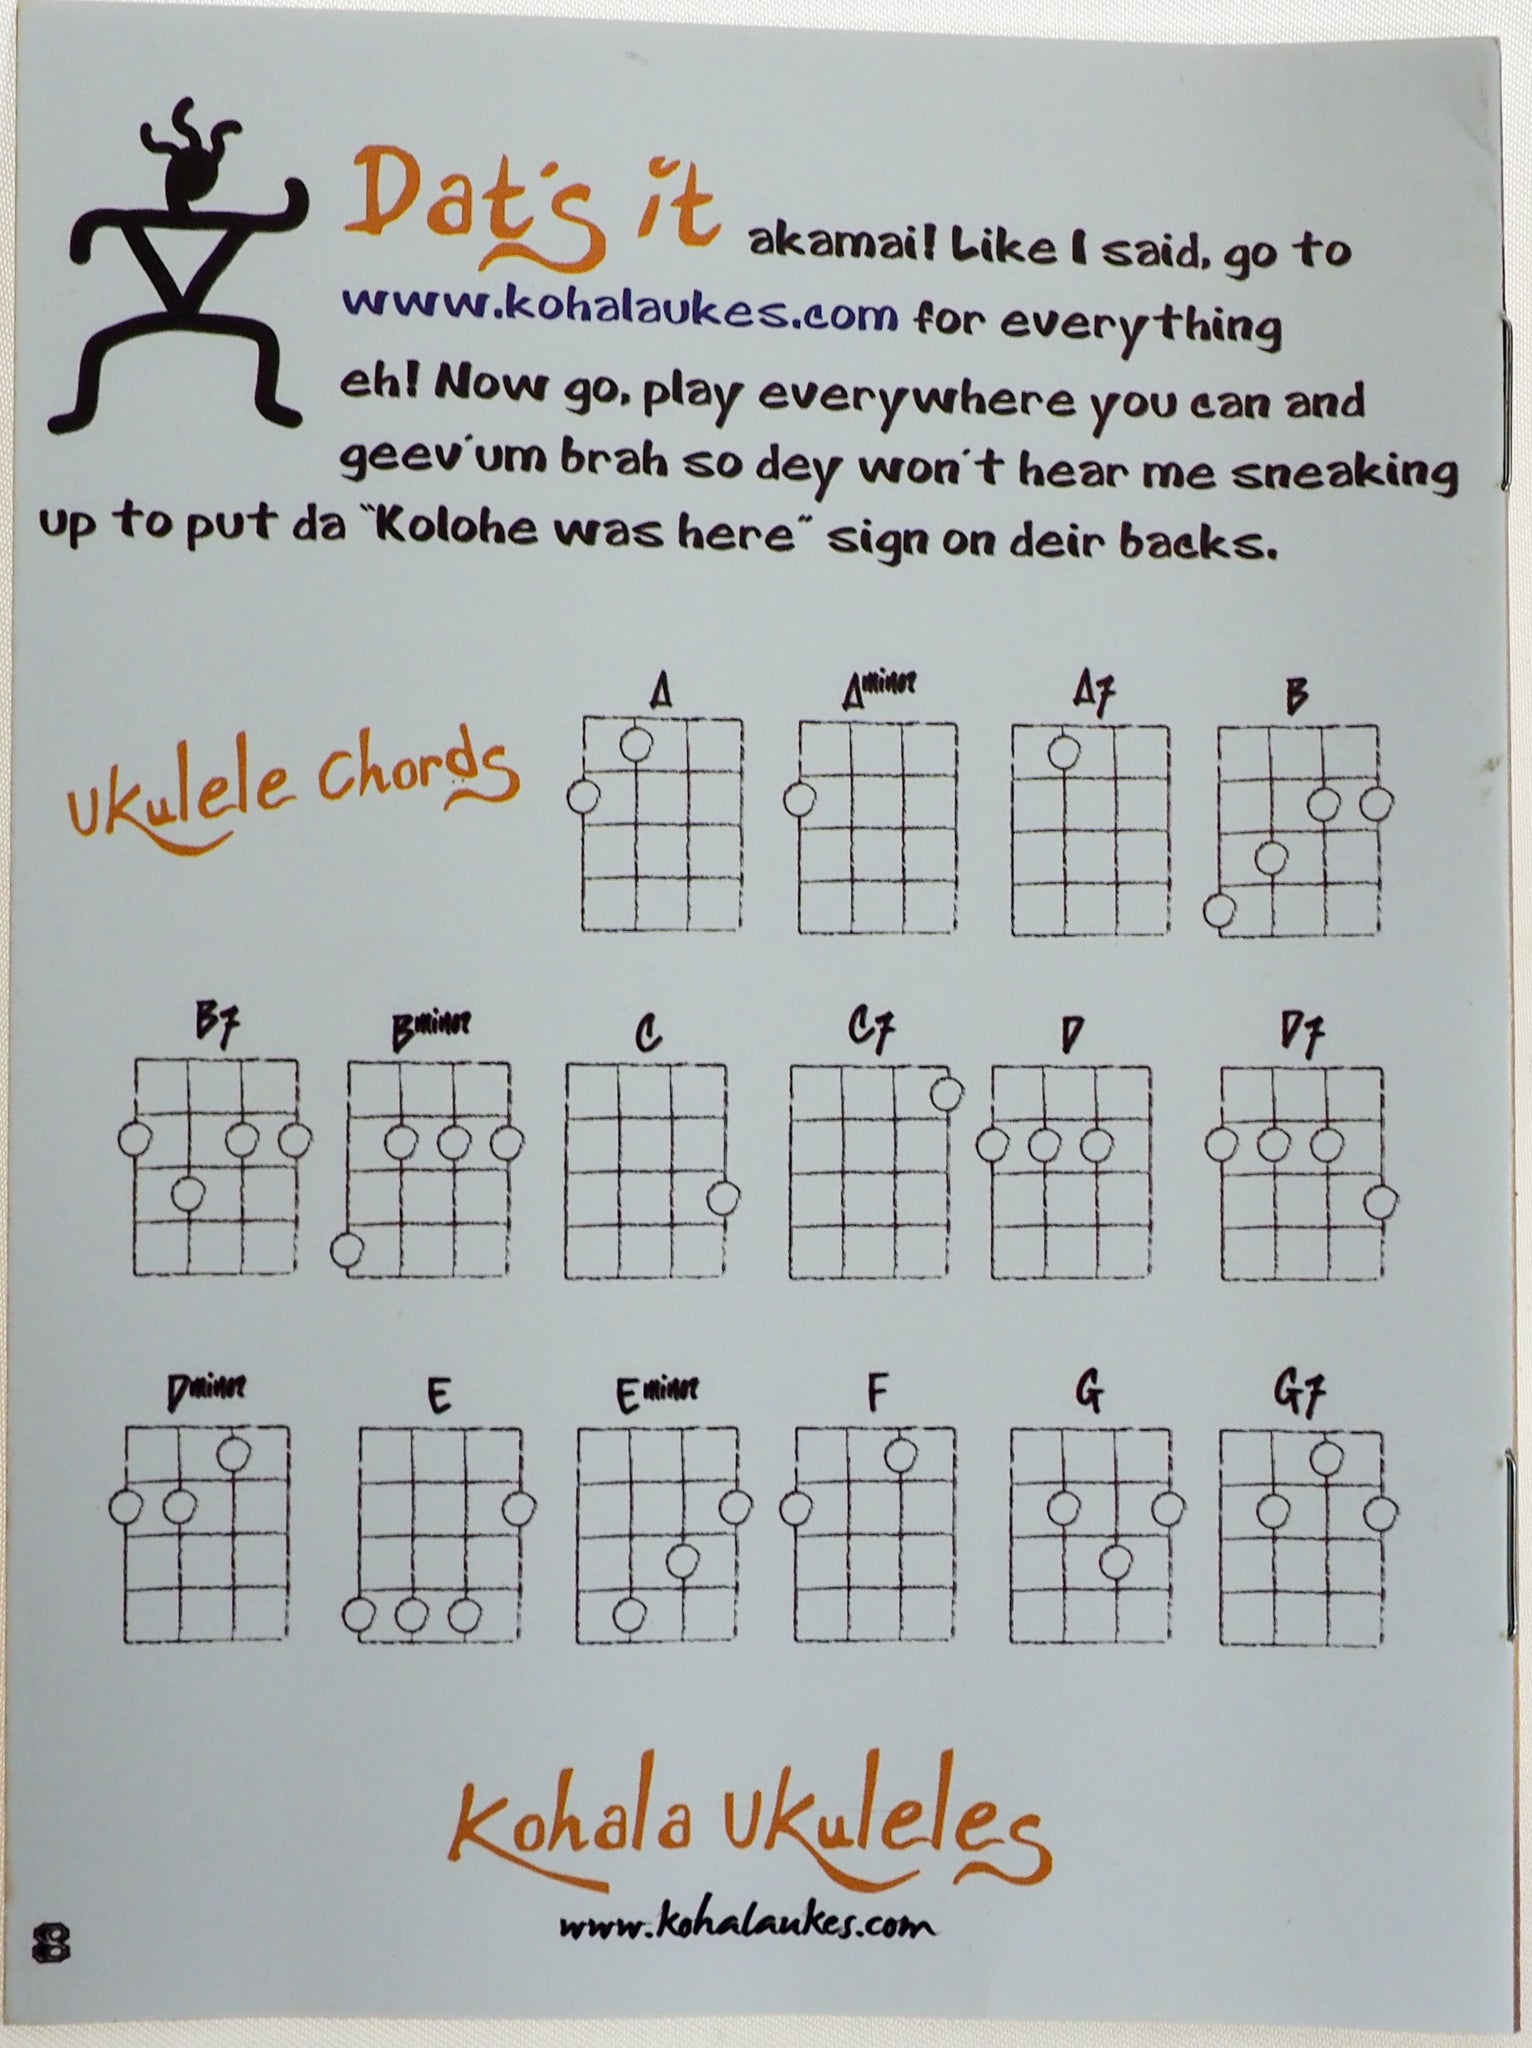 Dat's it akamai! Like I said, go to
www.kohalaukes.com for everything
eh! Now go, play everywhere you can and
geev'um brah so dey won't hear me sneaking
up to put da "Kolohe was here" sign on deir backs.
Ukulele Chords
A Aminor A7 B
B7 Bminor C C7 D D7
Dminor E Eminor F G G7
Kohala Ukuleles
www.kohalaukes.com
8